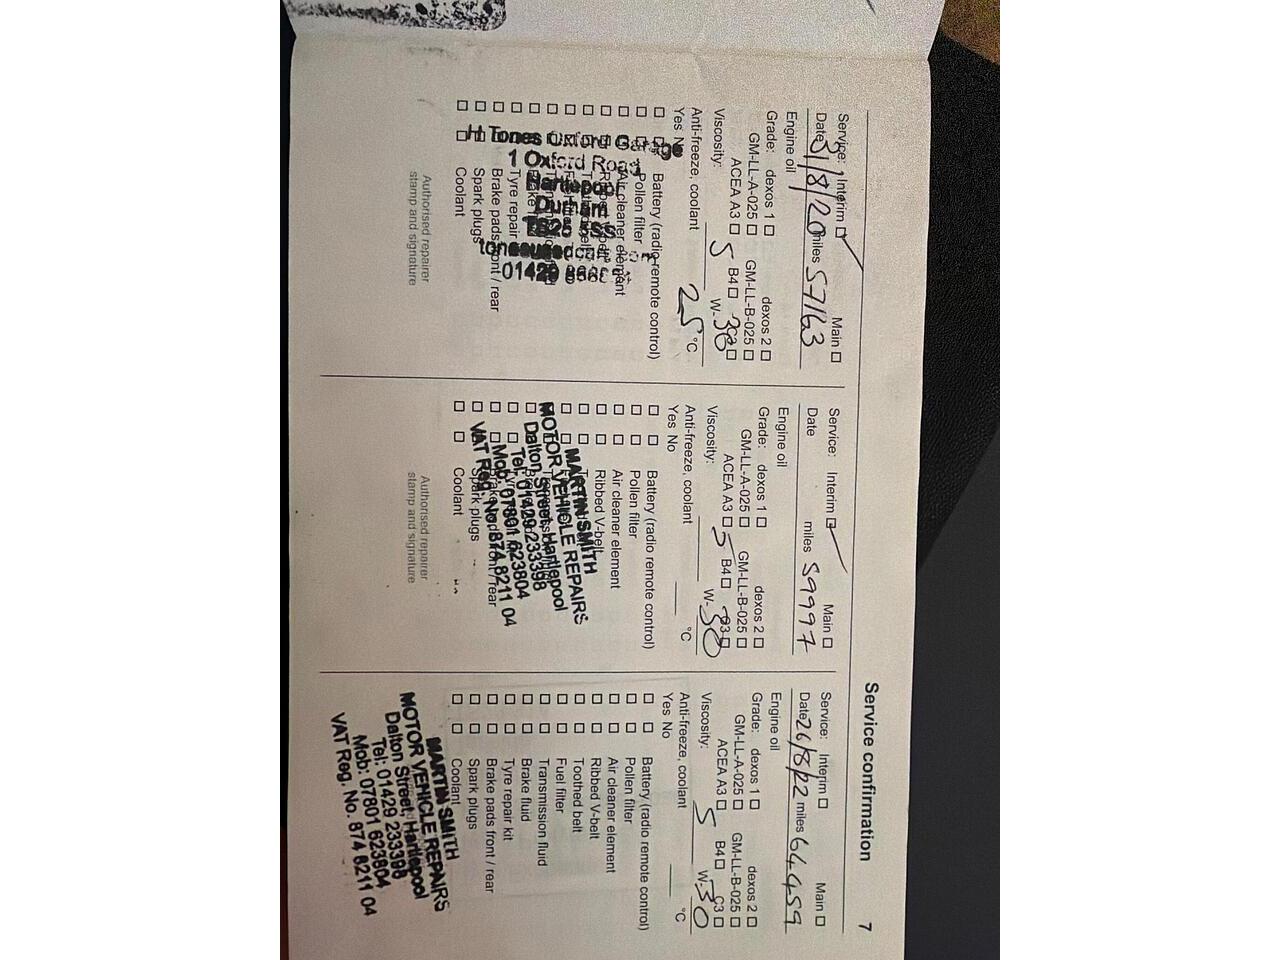 Service confirmation
7
Service: Interim ☐ Main ☐
Date 31/8/20 miles 57163
Engine oil
Grade: dexos 1 ☐ dexos 2 ☐
GM-LL-A-025 ☐ GM-LL-B-025 ☐
ACEA A3 ☐ B4 ☐ C3 ☐
Viscosity: 5 W-30
Anti-freeze, coolant 25 °C
Yes No
☐ ☐ Battery (radio remote control)
☐ ☐ Pollen filter
☐ ☐ Air cleaner element
Tyre repair
Brake pads front / rear
☐ ☐ Spark plugs
☐ ☐ Coolant
H Tones Oxford Garage
1 Oxford Road
Hartlepool
Durham
01429
Authorised repairer
stamp and signature
Service: Interim ☐ Main ☐
Date miles 59997
Engine oil
Grade: dexos 1 ☐ dexos 2 ☐
GM-LL-A-025 ☐ GM-LL-B-025 ☐
ACEA A3 ☐ B4 ☐ C3 ☐
Viscosity: 5 W-30
Anti-freeze, coolant °C
Yes No
☐ ☐ Battery (radio remote control)
☐ ☐ Pollen filter
☐ ☐ Air cleaner element
☐ ☐ Ribbed V-belt
☐ ☐ Spark plugs
☐ ☐ Coolant
MARTIN SMITH
MOTOR VEHICLE REPAIRS
Dalton Street, Hartlepool
Tel: 01429 233398
Mob: 07801 623804
VAT Reg. No. 874 8211 04
Authorised repairer
stamp and signature
Service: Interim ☐ Main ☐
Date 26/8/22 miles 64459
Engine oil
Grade: dexos 1 ☐ dexos 2 ☐
GM-LL-A-025 ☐ GM-LL-B-025 ☐
ACEA A3 ☐ B4 ☐ C3 ☐
Viscosity: 5 W-30
Anti-freeze, coolant °C
Yes No
☐ ☐ Battery (radio remote control)
☐ ☐ Pollen filter
☐ ☐ Air cleaner element
☐ ☐ Ribbed V-belt
☐ ☐ Toothed belt
☐ ☐ Fuel filter
☐ ☐ Transmission fluid
☐ ☐ Brake fluid
☐ ☐ Tyre repair kit
☐ ☐ Brake pads front / rear
☐ ☐ Spark plugs
☐ ☐ Coolant
MARTIN SMITH
MOTOR VEHICLE REPAIRS
Dalton Street, Hartlepool
Tel: 01429 233398
Mob: 07801 623804
VAT Reg. No. 874 8211 04